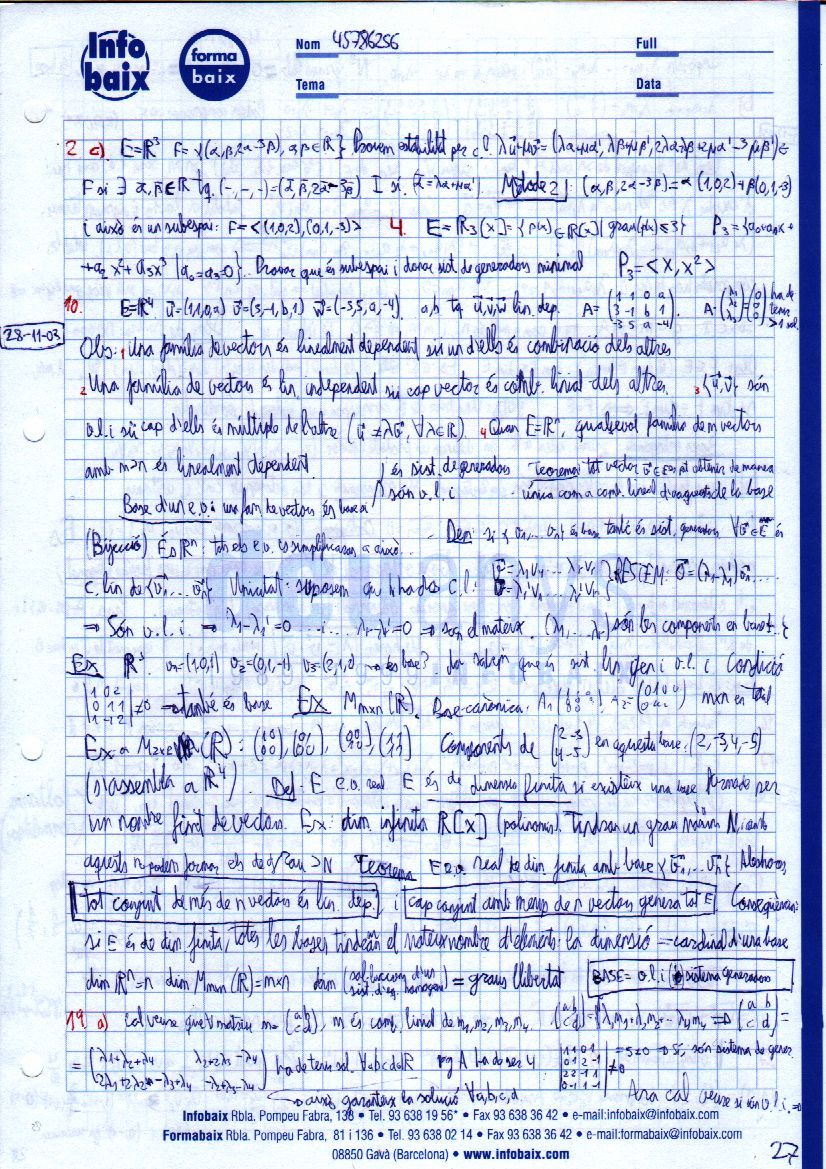 Infò baix
forma baix
Nom 45786256
Full
Tema
Data
2 c). E=ℝ³ F={(α,β,2α-3β), α,β∈ℝ} Provem estabilitat per c.l. λu+μv=(λα+μα', λβ+μβ', 2λα-3λβ+2μα'-3μβ')∈
F si ∃ α,β∈ℝ tq. (-,-,-)=(α,β,2α-3β) I sí. (α=λα+μα'). Mètode 2: (α,β,2α-3β)=α(1,0,2)+β(0,1,-3)
i això és un subespai: F=<(1,0,2),(0,1,-3)> 4. E=ℝ₃[x]={p(x)∈ℝ[x]| grau(p(x))≤3} P₃={a₀+a₁x+
+a₂x²+a₃x³ |a₀=a₃=0}. Provar que és subespai i donar sist. de generadors minimal P₃=<x,x²>
10. E=ℝ⁴ u=(1,1,0,a) v=(3,-1,b,1) w=(-3,5,a,-4). a,b tq u,v,w lin. dep. A=(1 1 0 a / 3 -1 b 1 / -3 5 a -4). A·(λ₁ λ₂ λ₃)=(0 0 0) ha de tenir >1 sol.
28-11-03
Obs: 1 Una família de vectors és linealment dependent sii un d'ells és combinació dels altres
2 Una família de vectors és lin. independent sii cap vector és comb. linial dels altres. 3 {u,v} són
v.l.i sii cap d'ells és múltiple de l'altre (u≠λv, ∀λ∈ℝ). 4 Quan E=ℝⁿ, qualsevol família de m vectors
amb m>n és linealment dependent. és sist. de generadors Teorema: tot vector v∈E es pot obtenir de manera
Base d'un e.v: una fam. de vectors és base si són v.l.i única com a comb. lineal d'aquests de la base
(Bijecció) ℝⁿ: tots els e.v. es simplificaran a això... Dem: si {v₁...vₙ} és base també és sist. generadors ∀v∈E és
c. lin de {v₁...vₙ} Unicitat: suposem que hi ha dos c.l.: v=λ₁v₁...λᵣvᵣ v=λ₁'v₁...λᵣ'vᵣ RESTEM: 0=(λ₁-λ₁')v₁...
⇒ Són v.l.i ⇒ λ₁-λ₁'=0 ...i... λᵣ-λᵣ'=0 ⇒ són el mateix. (λ₁,...λᵣ) són les components en base
Ex ℝ³ v₁=(1,0,1) v₂=(0,1,-1) v₃=(2,1,2) és base? Ja sabem que és sist. lin gen i v.l.i Condició
|1 0 2 / 0 1 1 / 1 -1 2|≠0 ⇒ també és base Ex Mmxn(ℝ). Base canònica: mxn en total
Ex a M2x2(ℝ): Components de (2 -3 / 4 -5) en aquesta base: (2,-3,4,-5)
(s'assembla a ℝ⁴). Def: E e.v. real E és de dimensió finita si existeix una base formada per
un nombre finit de vectors. Ex: dim. infinita ℝ[x] (polinomis). Tindran un grau màxim N, i amb
aquests no podem formar els de grau >N Teorema E e.v. real de dim finita amb base {v₁,...vₙ} Aleshores
tot conjunt de més de n vectors és lin. dep. i cap conjunt amb menys de n vectors genera tot E. Conseqüència:
si E és de dim finita, totes les bases tindran el mateix nombre d'elements: la dimensió = cardinal d'una base
dim ℝⁿ=n dim Mmxn(ℝ)=m×n dim (solucions d'un sist. d'eq. homogeni) = graus llibertat BASE = v.l.i sistema generadors
19 a) Cal veure que ∀ matriu m=(a b / c d), m és comb. linial de m₁,m₂,m₃,m₄. (a b / c d)=λ₁m₁+λ₂m₂...λ₄m₄ ⇒ (a b / c d)=
=(λ₁+λ₂+λ₄ λ₂+2λ₃-λ₄ / 2λ₁+2λ₂-λ₃+λ₄ -λ₂+λ₃-λ₄) ha de tenir sol. ∀a,b,c,d∈ℝ rg A ha de ser 4 |1 1 0 1 / 0 1 2 -1 / 2 2 -1 1 / 0 -1 1 -1| =5≠0 ⇒ Sí, són sistema de gener.
⇒ això garanteix la solució ∀a,b,c,d Ara cal veure si són v.l.i. ⇒
Infobaix Rbla. Pompeu Fabra, 130 • Tel. 93 638 19 56* • Fax 93 638 36 42 • e-mail:infobaix@infobaix.com
Formabaix Rbla. Pompeu Fabra, 81 i 136 • Tel. 93 638 02 14 • Fax 93 638 36 42 • e-mail:formabaix@infobaix.com
08850 Gavà (Barcelona) • www.infobaix.com
27